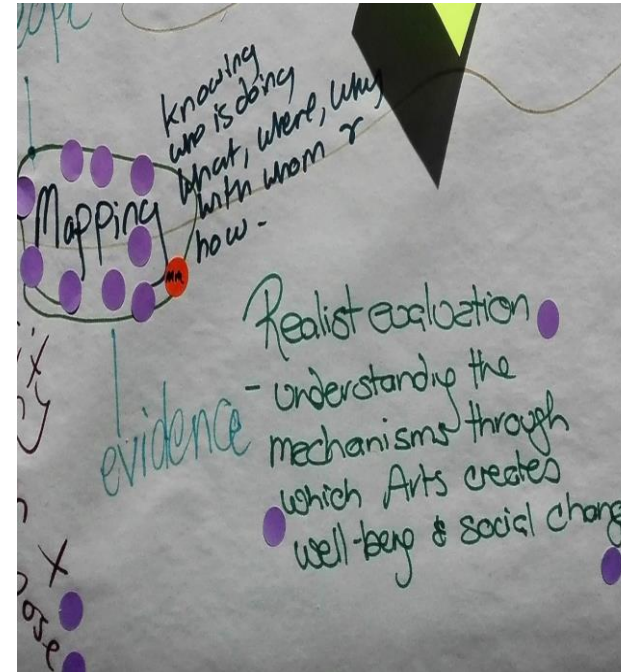 knowing
who is doing
what, where, why
with whom &
how -
Mapping
evidence
Realist evaluation
- understanding the
mechanisms through
which Arts creates
well-being & social chang
x
x
pose